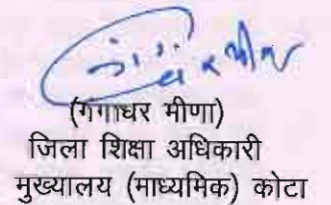 (गंगाधर मीणा)
जिला शिक्षा अधिकारी
मुख्यालय (माध्यमिक) कोटा